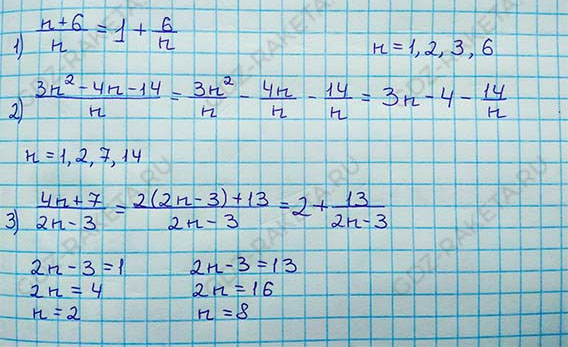 1) (n+6)/n = 1 + 6/n    n = 1, 2, 3, 6
2) (3n² - 4n - 14)/n = 3n²/n - 4n/n - 14/n = 3n - 4 - 14/n
n = 1, 2, 7, 14
3) (4n+7)/(2n-3) = (2(2n-3)+13)/(2n-3) = 2 + 13/(2n-3)
2n-3=1    2n-3=13
2n=4    2n=16
n=2    n=8
GDZ-RAKETA.RU